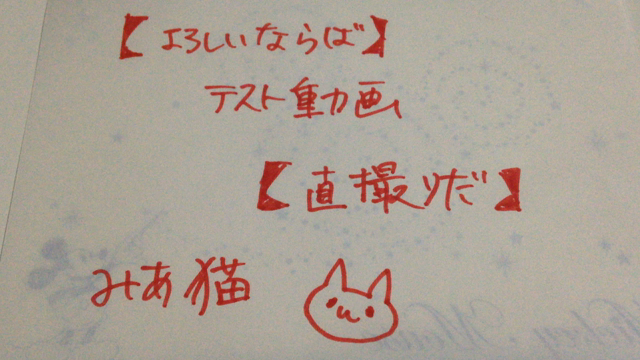 【よろしいならば】
テスト動画
【直撮りだ】
みあ猫